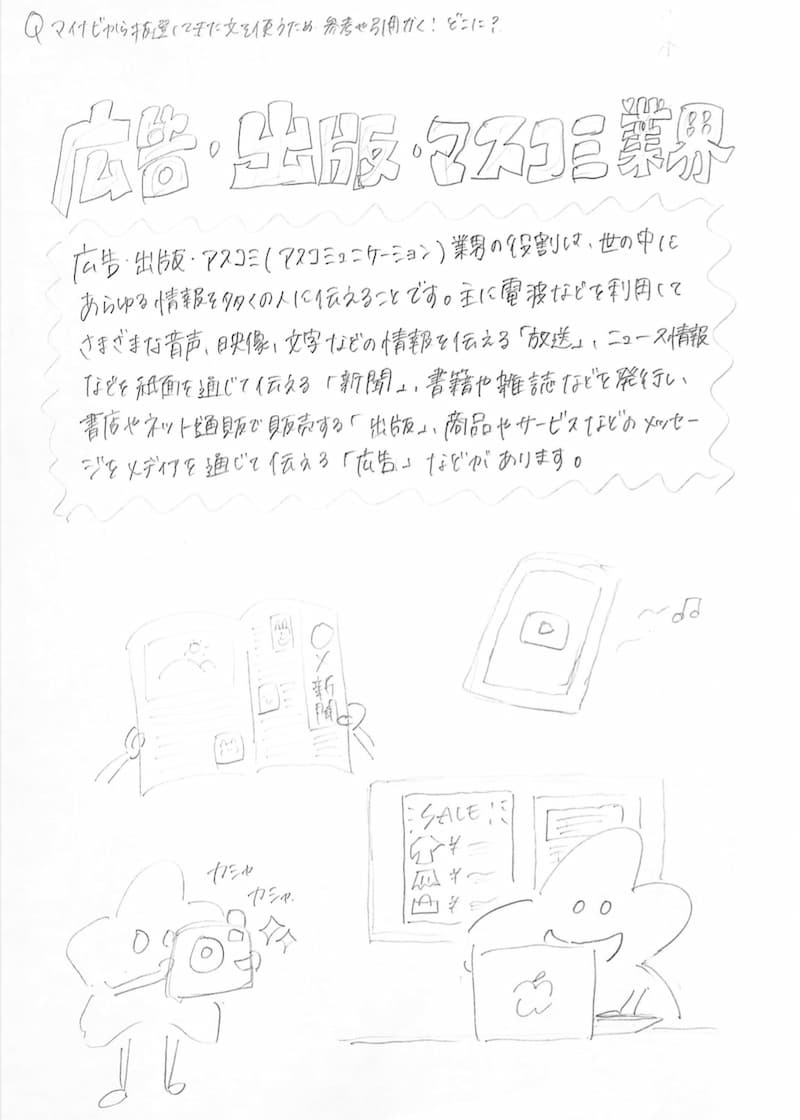 Q マイナビから抜選してきた文を使うため 参考や引用かく! どこに?
広告・出版・マスコミ業界
広告・出版・マスコミ(マスコミュニケーション)業界の役割は、世の中に
あらゆる情報を多くの人に伝えることです。主に電波などを利用して
さまざまな音声、映像、文字などの情報を伝える「放送」、ニュース情報
などを紙面を通じて伝える「新聞」、書籍や雑誌などを発行し、
書店やネット通販で販売する「出版」、商品やサービスなどのメッセー
ジをメディアを通じて伝える「広告」などがあります。
〇×新聞
カシャ
カシャ
SALE
¥
¥
¥